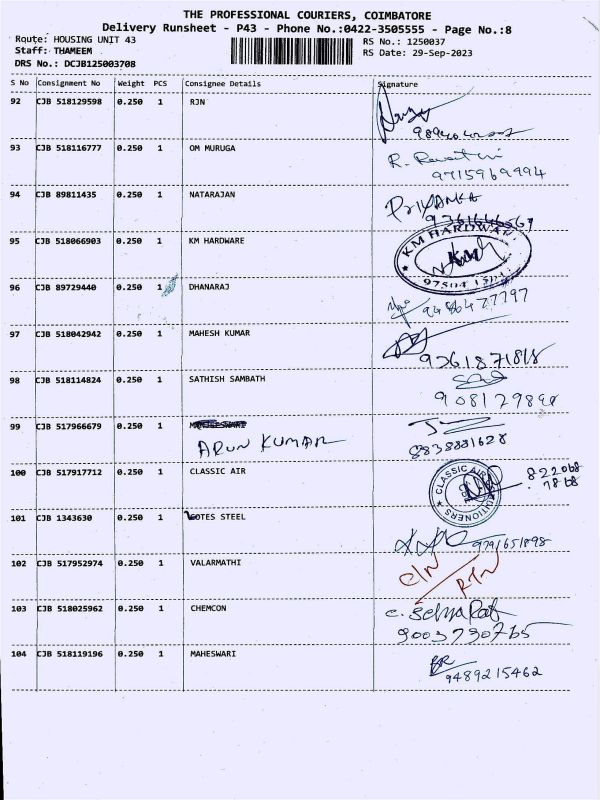 THE PROFESSIONAL COURIERS, COIMBATORE
Delivery Runsheet - P43 - Phone No.:0422-3505555 - Page No.:8
Route: HOUSING UNIT 43
RS No.: 1250037
Staff: THAMEEM
RS Date: 29-Sep-2023
DRS No.: DCJB125003708
S No Consignment No Weight PCS Consignee Details Signature
92 CJB 518129598 0.250 1 RJN
93 CJB 518116777 0.250 1 OM MURUGA
R. Revathi
9715969994
94 CJB 89811435 0.250 1 NATARAJAN
PRIYANKA
9361646567
95 CJB 518066903 0.250 1 KM HARDWARE
KM HARDWARE
96 CJB 89729440 0.250 1 DHANARAJ
9486477797
97 CJB 518042942 0.250 1 MAHESH KUMAR
9361871818
98 CJB 518114824 0.250 1 SATHISH SAMBATH
99 CJB 517966679 0.250 1
ARUN KUMAR
8838831628
100 CJB 517917712 0.250 1 CLASSIC AIR
CLASSIC AIR CONDITIONERS
822068
7868
101 CJB 1343630 0.250 1 LOTES STEEL
9791651898
102 CJB 517952974 0.250 1 VALARMATHI
C/N
RTN
103 CJB 518025962 0.250 1 CHEMCON
9003730765
104 CJB 518119196 0.250 1 MAHESWARI
9489215462